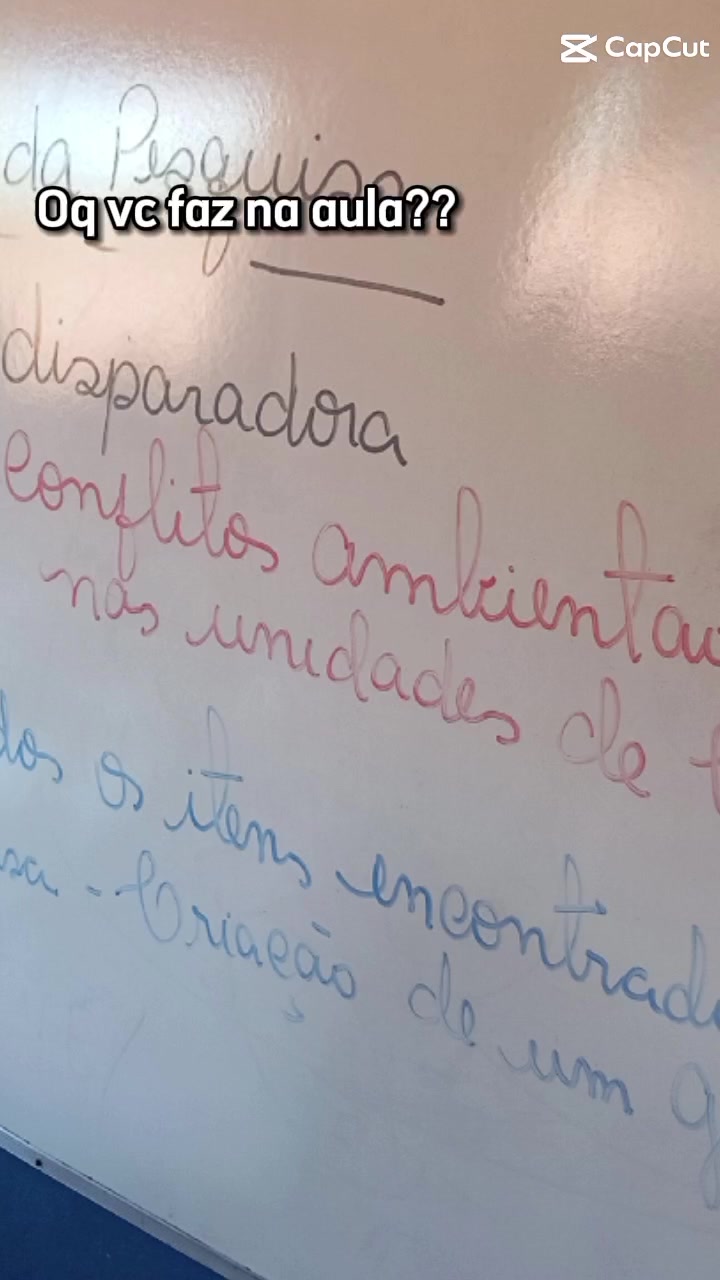 CapCut
da Pesquisa
Oq vc faz na aula??
disparadora
conflitos ambientai
nas unidades de
dos os itens encontrado
sa - Criação de um g